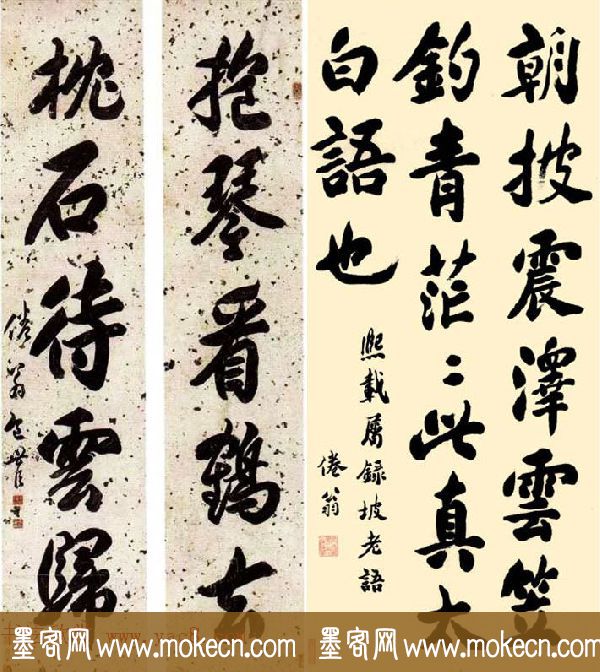 朝披震澤雲笠
釣青茫〻此真太
白語也
熙載屬録坡老語
倦翁
抱琴看鶴去
枕石待雲歸
倦翁包世臣
墨客网 www.mokecn.com
墨客网 www.mokecn.com